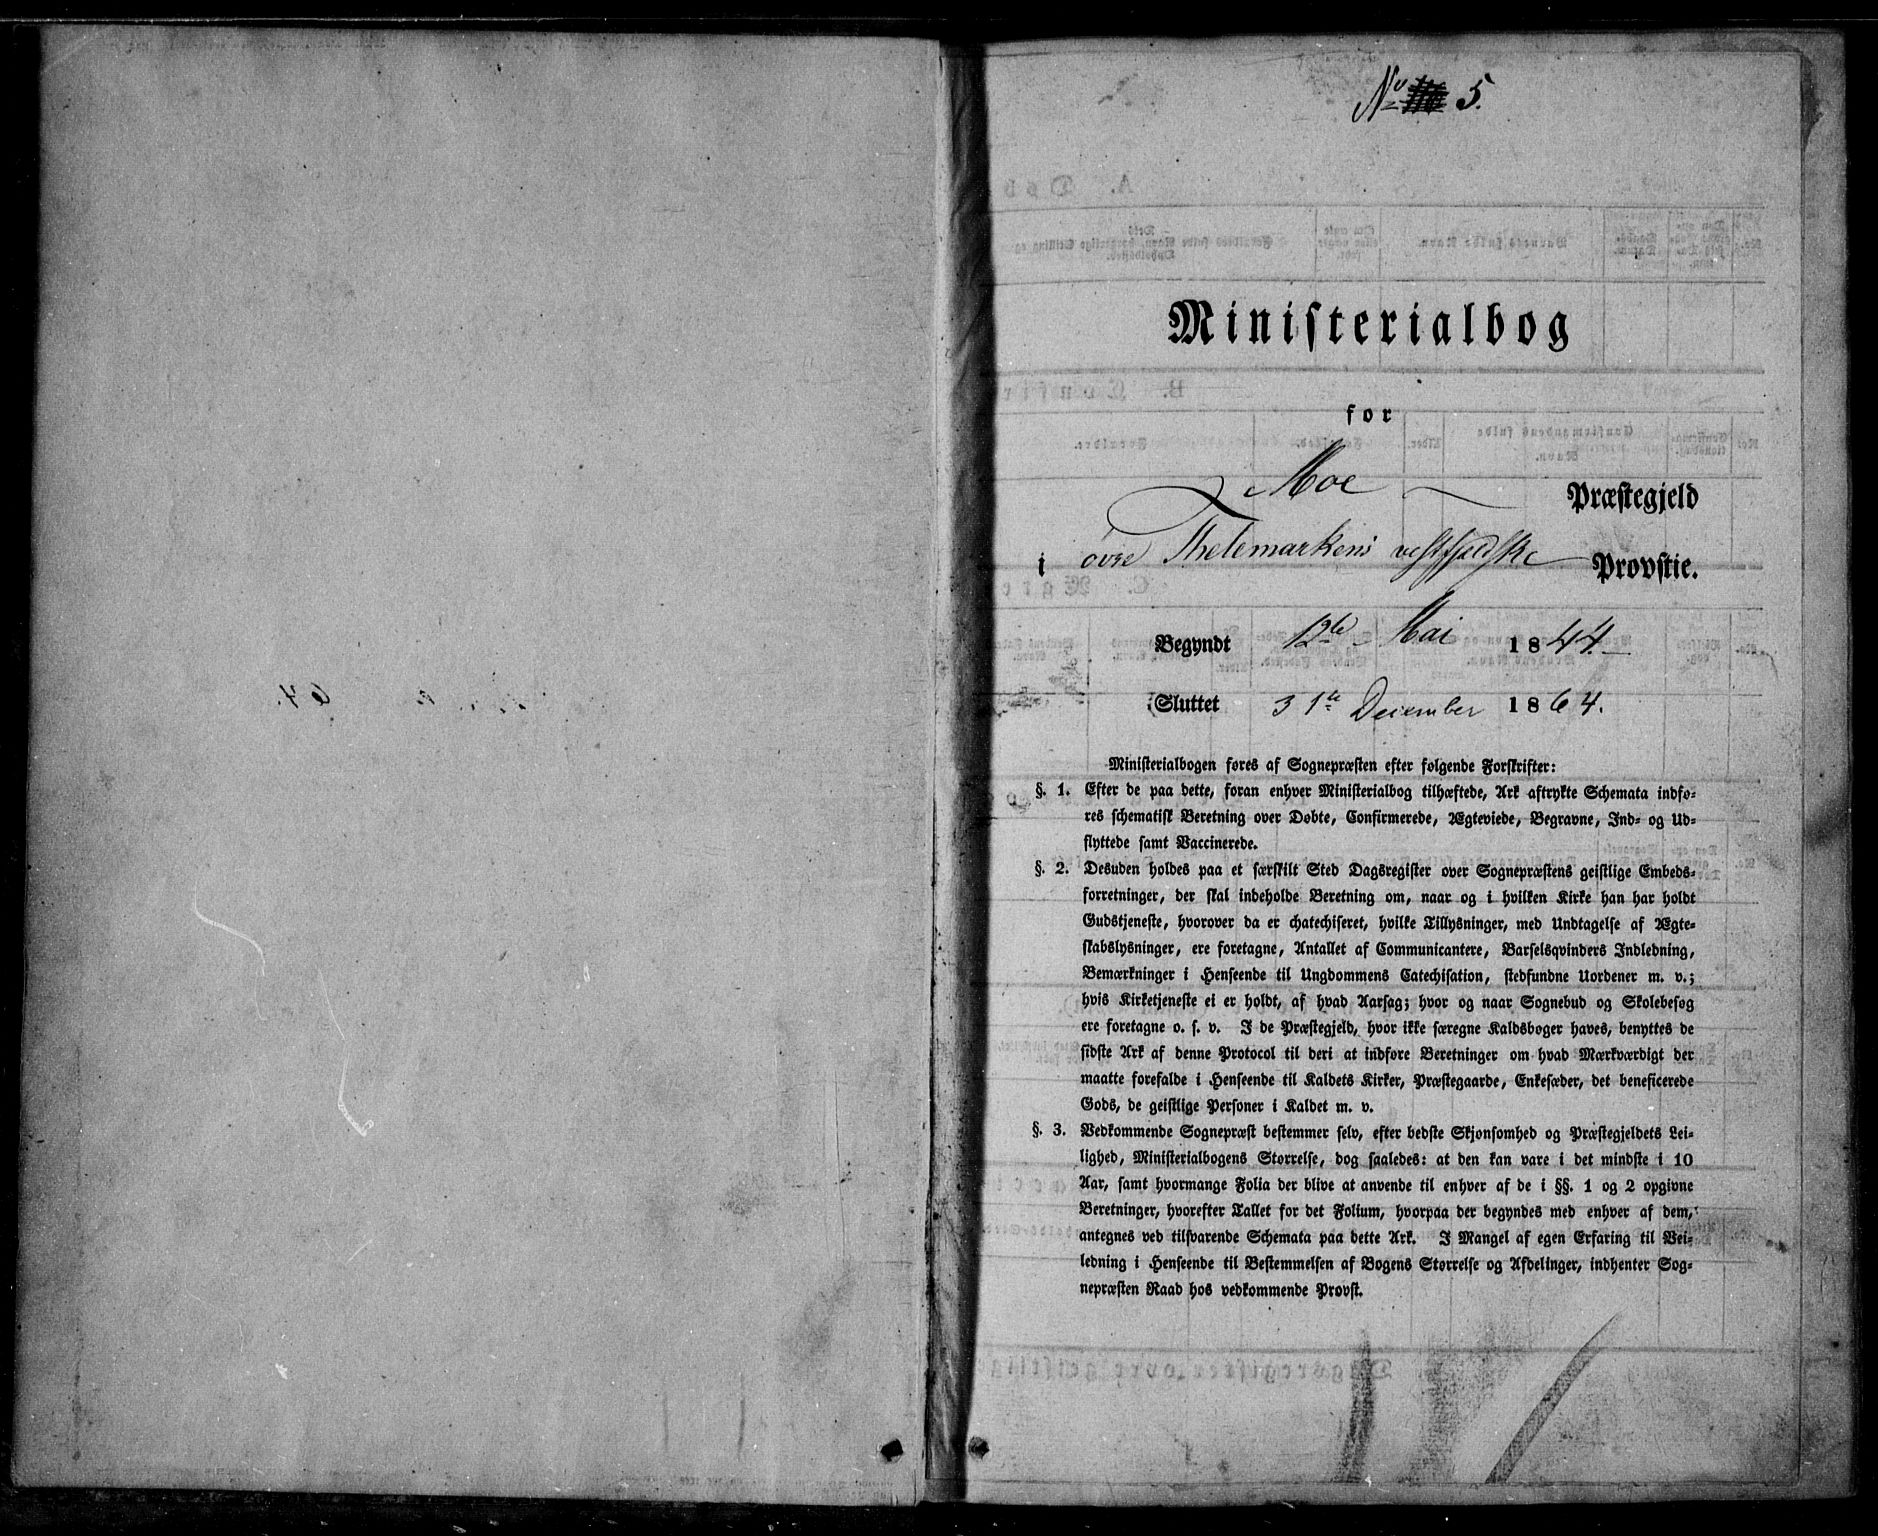 No 5.
Ministerialbog
for
Moe Præstegjeld
i øvre Thelemarkens vestfjeldske Provstie.
Begyndt 12te Mai 1844.
Sluttet 31te December 1864.
Ministerialbogen føres af Sognepræsten efter følgende Forskrifter:
§. 1. Efter de paa dette, foran enhver Ministerialbog tilhæftede, Ark aftrykte Schemata indfø-
res schematisk Beretning over Døbte, Confirmerede, Ægteviede, Begravne, Ind- og Ud-
flyttede samt Vaccinerede.
§. 2. Desuden holdes paa et særskilt Sted Dagsregister over Sognepræstens geistlige Embeds-
forretninger, der skal indeholde Beretning om, naar og i hvilken Kirke han har holdt
Gudstjeneste, hvorover da er chatechiseret, hvilke Tillysninger, med Undtagelse af Ægte-
skabslysninger, ere foretagne, Antallet af Communicantere, Barselsqvinders Indledning,
Bemærkninger i Henseende til Ungdommens Catechisation, stedfundne Uordener m. v.;
hvis Kirketjeneste ei er holdt, af hvad Aarsag; hvor og naar Sognebud og Skolebesøg
ere foretagne o. s. v. I de Præstegjeld, hvor ikke særegne Kaldsbøger haves, benyttes de
sidste Ark af denne Protocol til deri at indføre Beretninger om hvad Mærkværdigt der
maatte forefalde i Henseende til Kaldets Kirker, Præstegaarde, Enkesæder, det beneficerede
Gods, de geistlige Personer i Kaldet m. v.
§. 3. Vedkommende Sognepræst bestemmer selv, efter bedste Skjønsomhed og Præstegjeldets Lei-
lighed, Ministerialbogens Størrelse, dog saaledes: at den kan vare i det mindste i 10
Aar, samt hvormange Folia der blive at anvende til enhver af de i §§. 1 og 2 opgivne
Beretninger, hvorefter Tallet for det Folium, hvorpaa der begyndes med enhver af dem,
antegnes ved tilsvarende Schemata paa dette Ark. I Mangel af egen Erfaring til Vei-
ledning i Henseende til Bestemmelsen af Bogens Størrelse og Afdelinger, indhenter Sog-
nepræsten Raad hos vedkommende Provst.